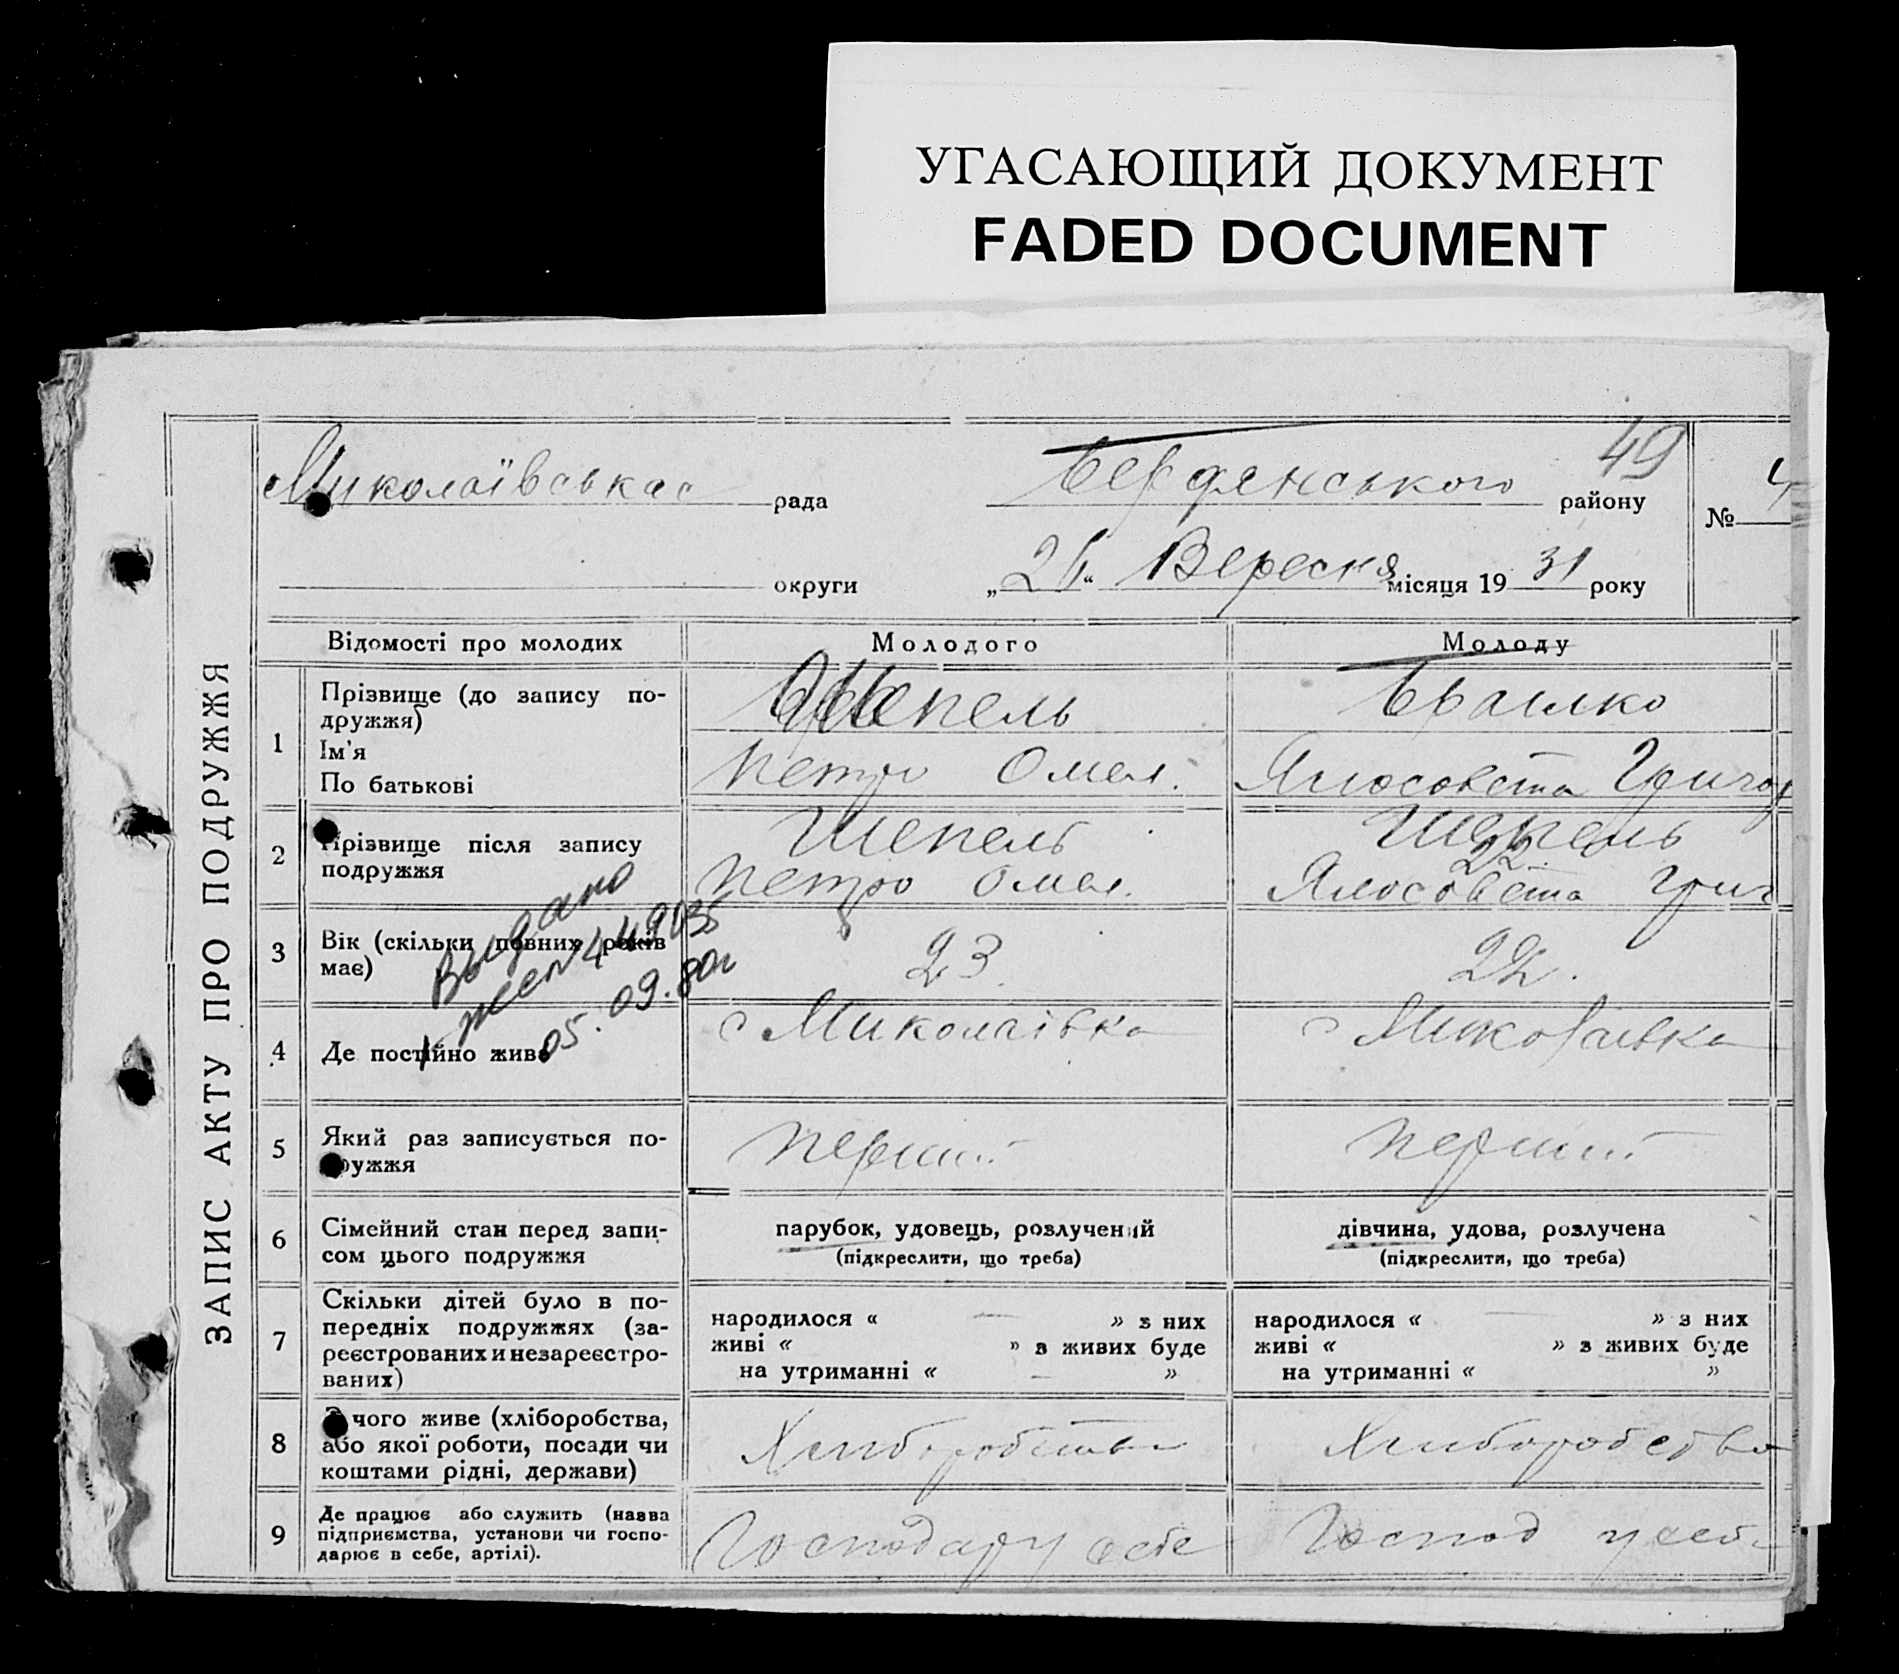 УГАСАЮЩИЙ ДОКУМЕНТ
FADED DOCUMENT
ЗАПИС АКТУ ПРО ПОДРУЖЖЯ
49
Миколаївська рада Бердянського району № 4
округи „26“ Вересня місяця 1931 року
Відомості про молодих Молодого Молоду
1 Прізвище (до запису по-
дружжя)
Ім'я
По батькові
Шепель
Петро Омел.
Браілко
Ялосовета Григор
2 Прізвище після запису
подружжя
Шепель
Петро Омел.
Шепель
22
Ялосовета Григ
3 Вік (скільки повних років
має)
23
22.
Выдано
449035
05.09.80г
4 Де постійно живе
с Миколаівка
с Миколаівка
5 Який раз записується по-
дружжя
Перший
Перший
6 Сімейний стан перед запи-
сом цього подружжя
парубок, удовець, розлучений
(підкреслити, що треба)
дівчина, удова, розлучена
(підкреслити, що треба)
7 Скільки дітей було в по-
передніх подружжях (за-
реєстрованих и незареєстро-
ваних)
народилося « — » з них
живі « » з живих буде
на утриманні « — »
народилося « — » з них
живі « » з живих буде
на утриманні « »
8 З чого живе (хліборобства,
або якої роботи, посади чи
коштами рідні, держави)
Хлиборобство
Хлиборобство
9 Де працює або служить (назва
підприємства, установи чи госпо-
дарює в себе, артілі).
Господару себе
Господ у себе